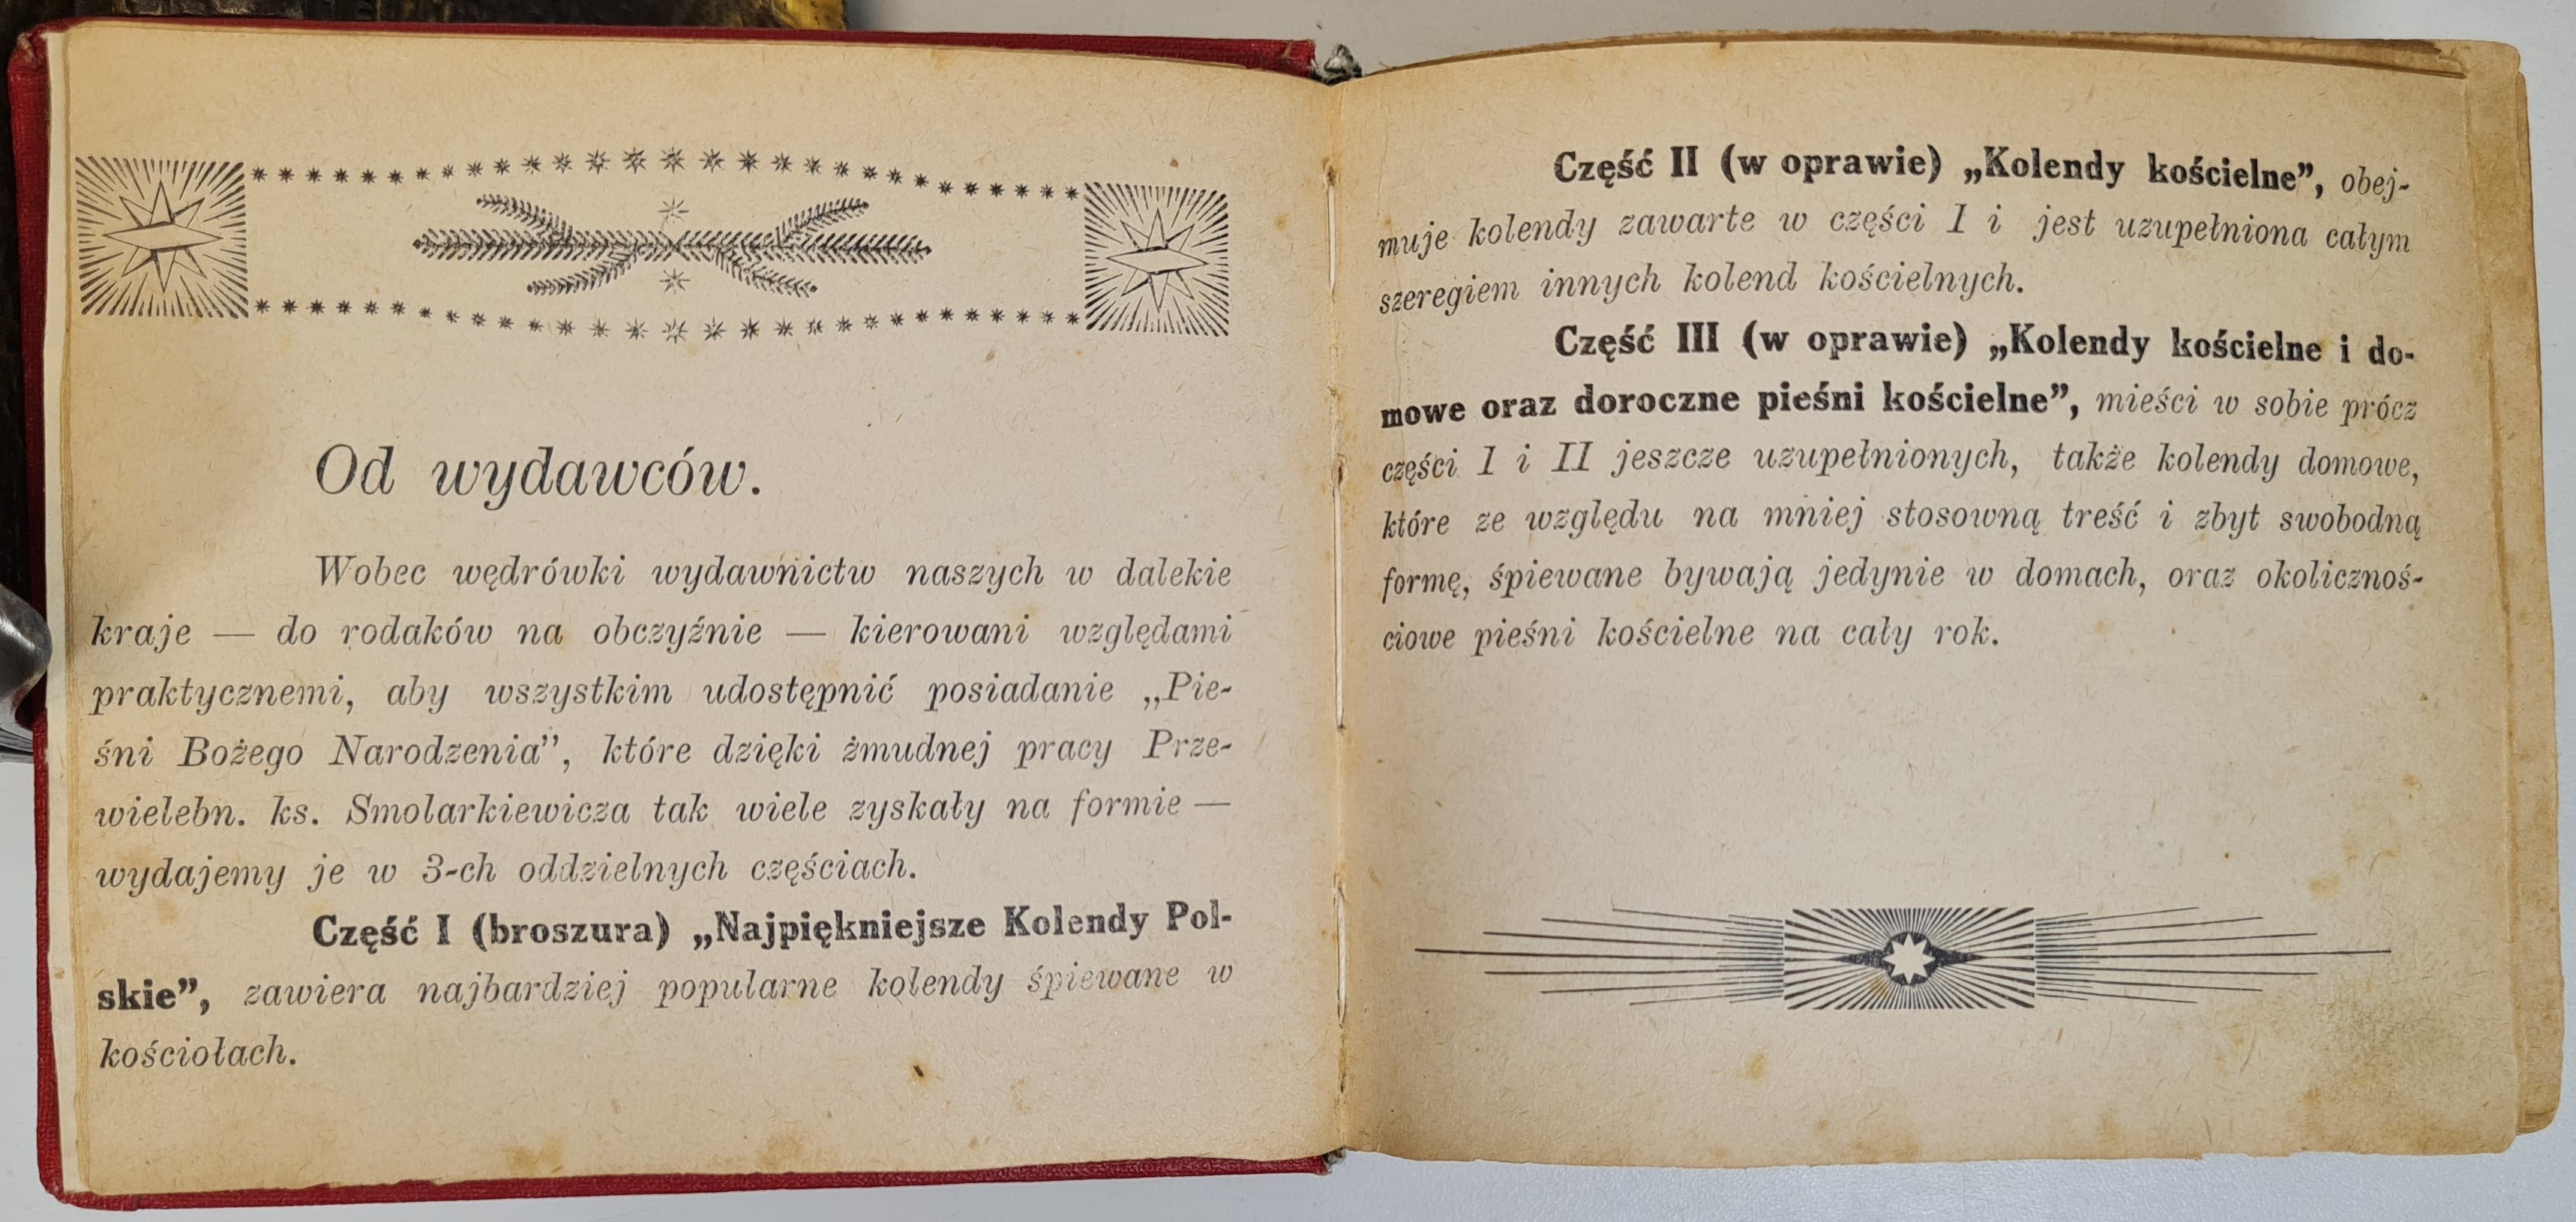 Od wydawców.
Wobec wędrówki wydawnictw naszych w dalekie
kraje — do rodaków na obczyźnie — kierowani względami
praktycznemi, aby wszystkim udostępnić posiadanie „Pie-
śni Bożego Narodzenia”, które dzięki żmudnej pracy Prze-
wielebn. ks. Smolarkiewicza tak wiele zyskały na formie —
wydajemy je w 3-ch oddzielnych częściach.
Część I (broszura) „Najpiękniejsze Kolendy Pol-
skie”, zawiera najbardziej popularne kolendy śpiewane w
kościołach.
Część II (w oprawie) „Kolendy kościelne”, obej-
muje kolendy zawarte w części I i jest uzupełniona całym
szeregiem innych kolend kościelnych.
Część III (w oprawie) „Kolendy kościelne i do-
mowe oraz doroczne pieśni kościelne”, mieści w sobie prócz
części I i II jeszcze uzupełnionych, także kolendy domowe,
które ze względu na mniej stosowną treść i zbyt swobodną
formę, śpiewane bywają jedynie w domach, oraz okolicznoś-
ciowe pieśni kościelne na cały rok.